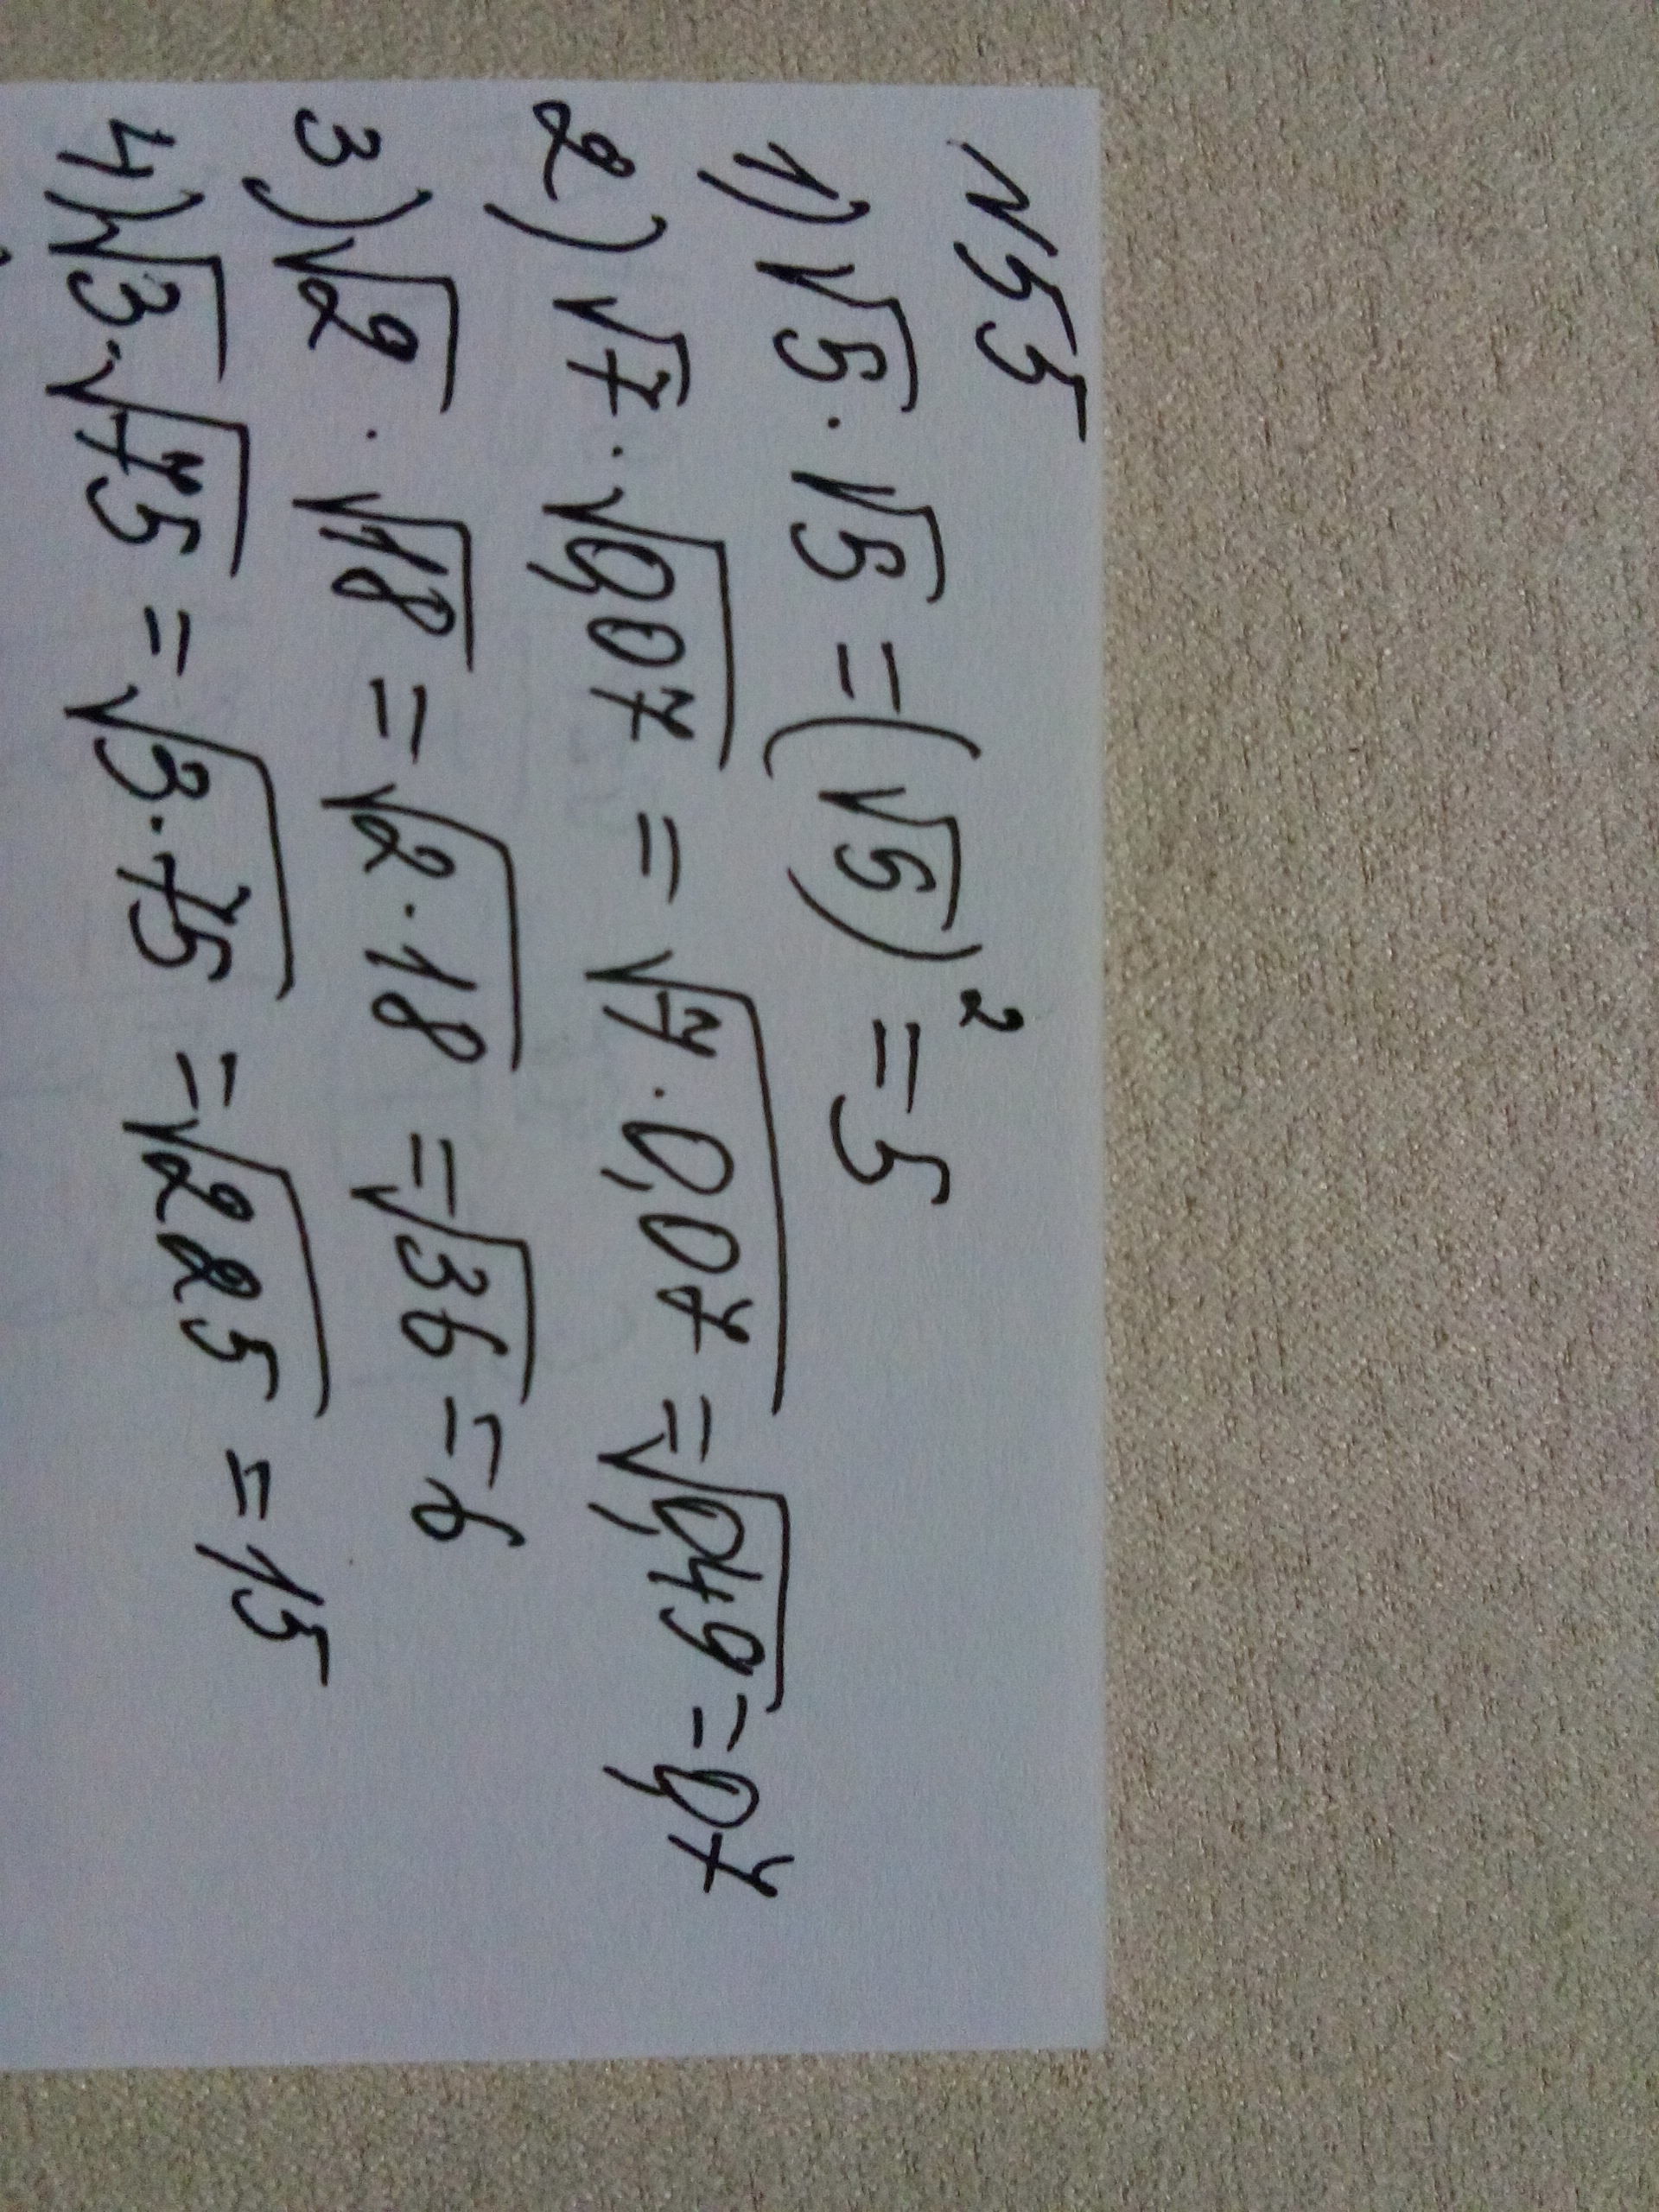 N55
1) √5 · √5 = (√5)² = 5
2) √7 · √0,07 = √7 · 0,07 = √0,49 = 0,7
3) √2 · √18 = √2 · 18 = √36 = 6
4) √3 · √75 = √3 · 75 = √225 = 15